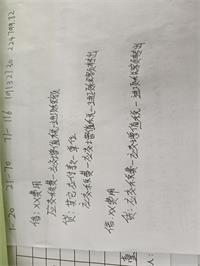 1-20 21-70 71-116 19132730 224799.82
借:XX费用
应交税费-应交增值税-进项税额
贷:其它应付款-单位
应交税费-应交增值税-进项税额转出
借:XX费用
贷:应交税费-应交增值税-进项税额转出